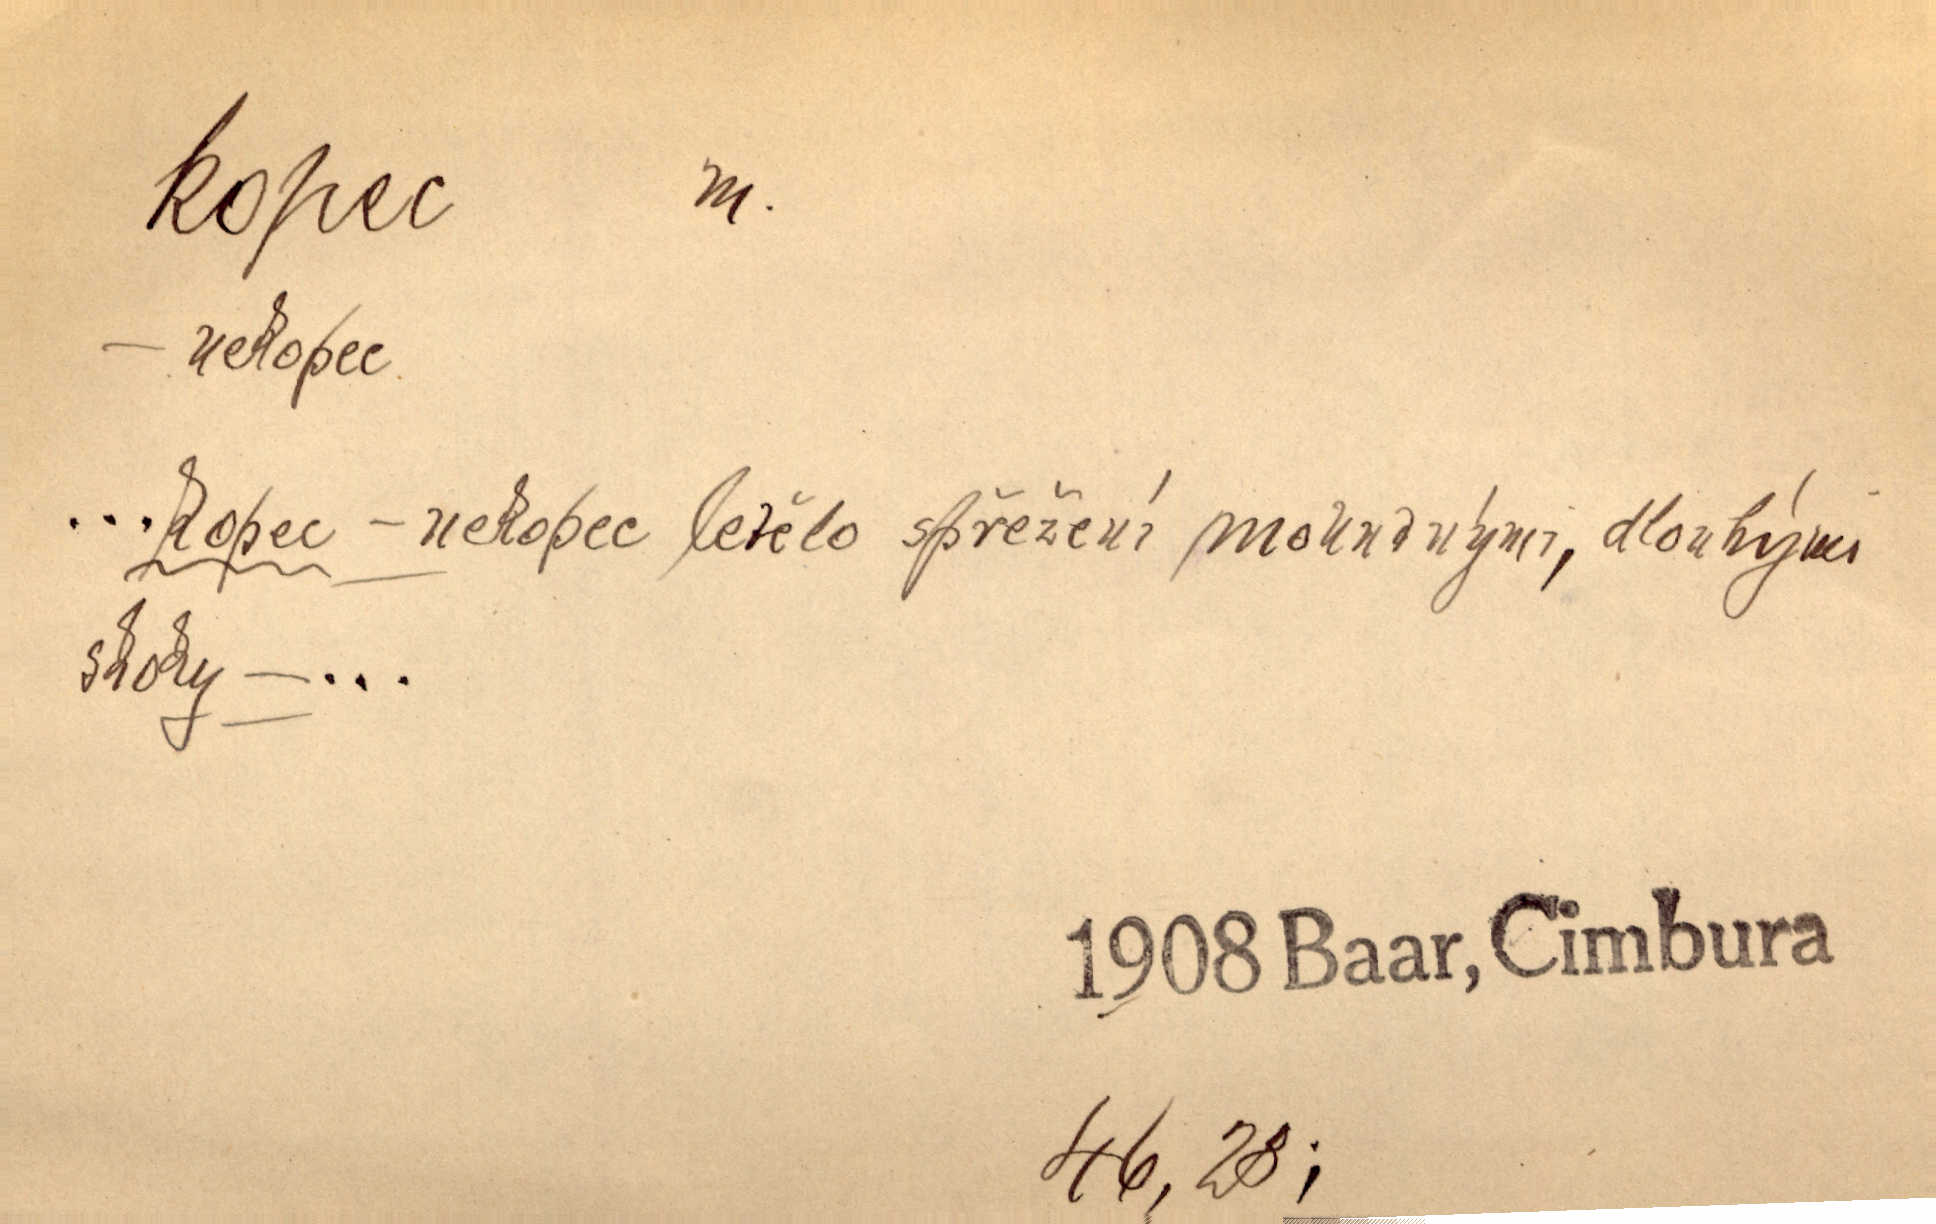 kopec m.
– nekopec
...kopec – nekopec letělo spřežení mohutnými, dlouhými
skoky – ...
1908 Baar, Cimbura
46, 28;